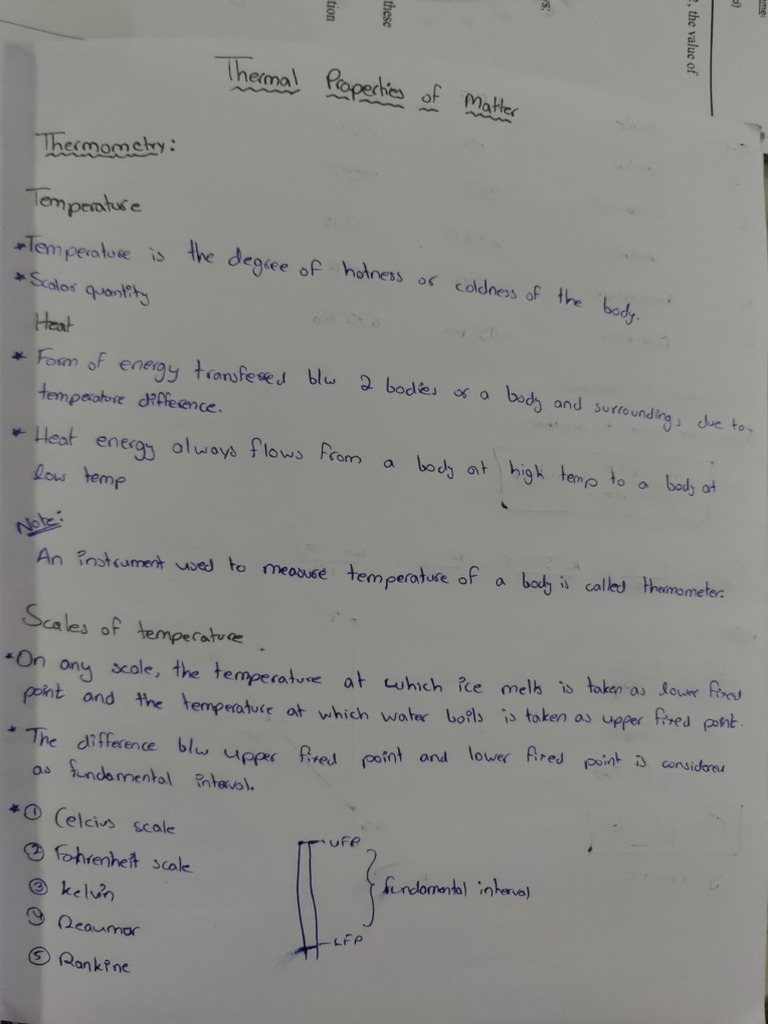 tion
these
s:
?, the value of
Thermal Properties of Matter
Thermometry:
Temperature
*Temperature is the degree of hotness or coldness of the body.
*Scalar quantity
Heat
* Form of energy transfered b/w 2 bodies or a body and surroundings due to
temperature difference.
* Heat energy always flows from a body at high temp to a body at
low temp
Note:
An instrument used to measure temperature of a body is called thermometer.
Scales of temperature
*On any scale, the temperature at which ice melts is taken as lower fixed
point and the temperature at which water boils is taken as upper fixed point.
* The difference b/w upper fixed point and lower fixed point is considered
as fundamental interval.
*① Celcius scale
② Fahrenheit scale
③ Kelvin
④ Reaumar
⑤ Rankine
UFP
fundamental interval
LFP